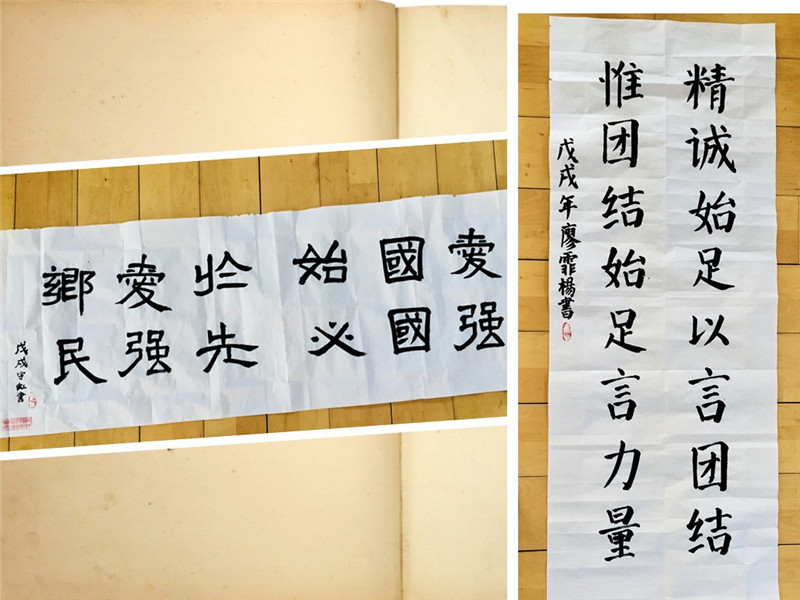 愛國始於愛鄉
强國必先强民
戊戌宇虹書
精诚始足以言团结
惟团结始足言力量
戊戌年廖霏楊書